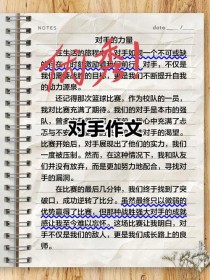 NOTES
date
对手的力量
在生活的旅程中，对手如同一个不可或缺
优秀！
的
对手，不仅是
我们
更是我们不断提升自我
的动力源泉。
还记得那次篮球比赛，作为校队的一员，
我对比赛充满了期待。我们的对手是本市的强
队，
心中充满了忐
忑与不安
对手的渴望。
对手作文
比赛开始后，对手展现出了他们的实力，我们
一度被压制。然而，在这种情况下，我和队友
们并没有放弃，而是更加努力地配合，寻找对
手的漏洞。
在比赛的最后几分钟，我们终于找到了突
破口，成功逆转了比分。虽然最终只以微弱的
优势赢得了比赛，但那种战胜强大对手的成就
感让我至今难以忘怀。这场比赛让我明白，对
手不仅是我们的敌人，更是我们成长路上的良
师。